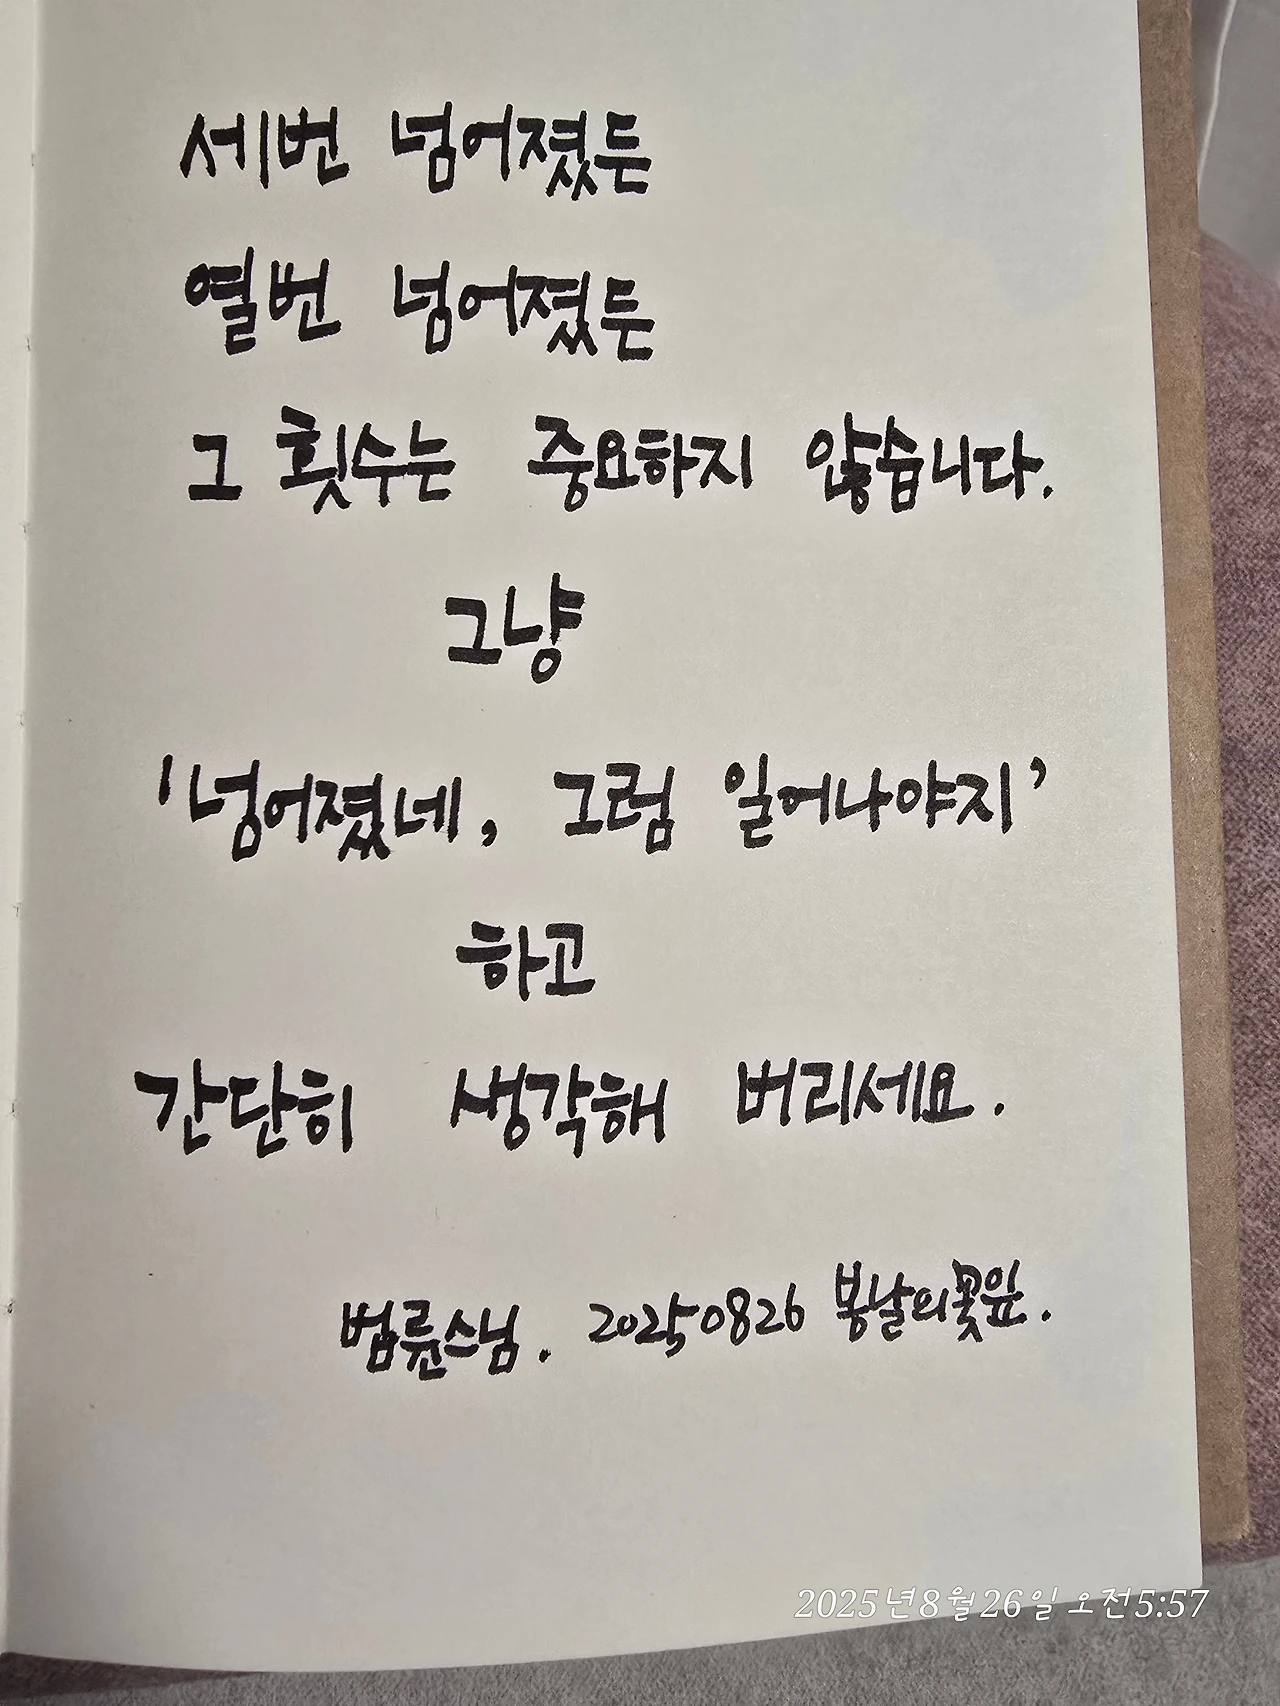 세번 넘어졌든
열번 넘어졌든
그 횟수는 중요하지 않습니다.
그냥
'넘어졌네, 그럼 일어나야지'
하고
간단히 생각해 버리세요.
법륜스님. 20250826 봄날의꽃잎.
2025년 8월 26일 오전 5:57